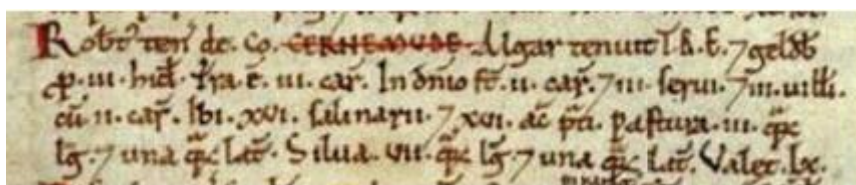 Robt' ten' de. Co. CERNEMUDE. Algar tenuit T.R.E. ⁊ geldb'
ꝑ. iii. hid'. Tra. ē. iii. car'. In dn̄io st'. ii. car'. ⁊ iii. serui. ⁊ iii. uilli.
cū ii. car'. Ibi. xxvi. salinarii. ⁊ xvi. ac̄ p̄ti. pastura. iii. q̄rc
lḡ. ⁊ una q̄rc lat̄. Silua. vii. q̄rc lḡ. ⁊ una q̄rc lat̄. Valet. lx.